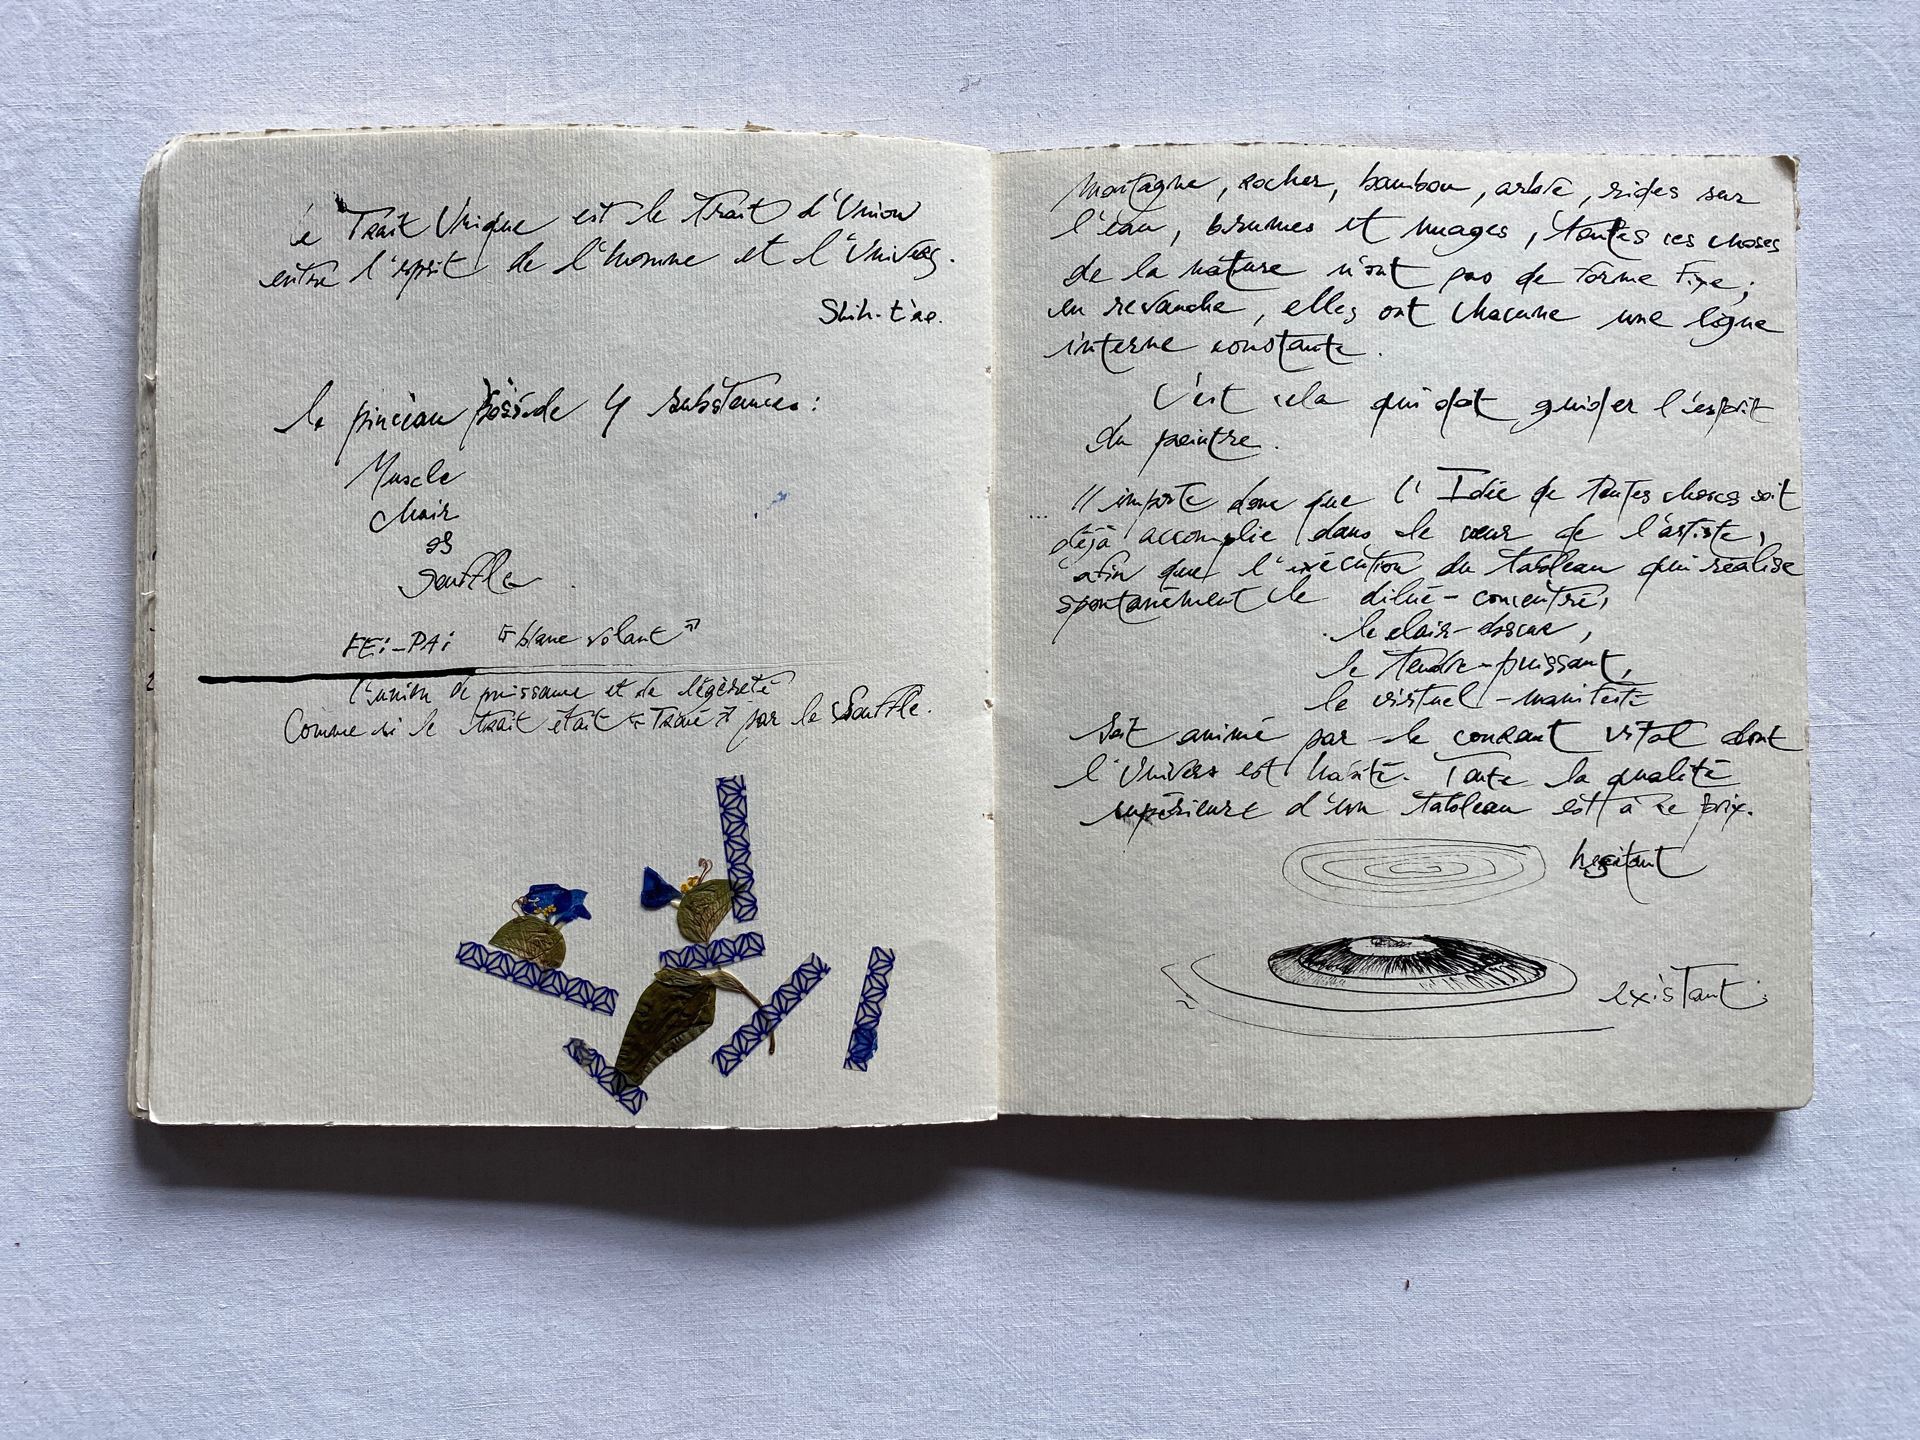 Le Trait Unique est le Trait d'Union
entre l'esprit de l'Homme et l'Univers.
Shih-t'ao.
le pinceau possède 4 substances:
Muscle
chair
os
souffle.
FEi-PAi "blanc volant"
l'union de puissance et de légèreté
Comme si le trait était "Tracé" par le Souffle.
Montagne, rocher, bambou, arbre, rides sur
l'eau, brumes et nuages, toutes ces choses
de la nature n'ont pas de forme Fixe;
en revanche, elles ont chacune une ligne
interne constante.
C'est cela qui doit guider l'esprit
du peintre.
... Il importe donc que l'Idée de toutes choses soit
déjà accomplie dans le cœur de l'artiste,
afin que l'exécution du tableau qui réalise
spontanément le dilué-concentré,
le clair-obscur,
le tendre-puissant,
le virtuel-manifeste
soit animé par le courant vital dont
l'Univers est habité. Toute la qualité
supérieure d'un tableau est à ce prix.
hésitant
existant